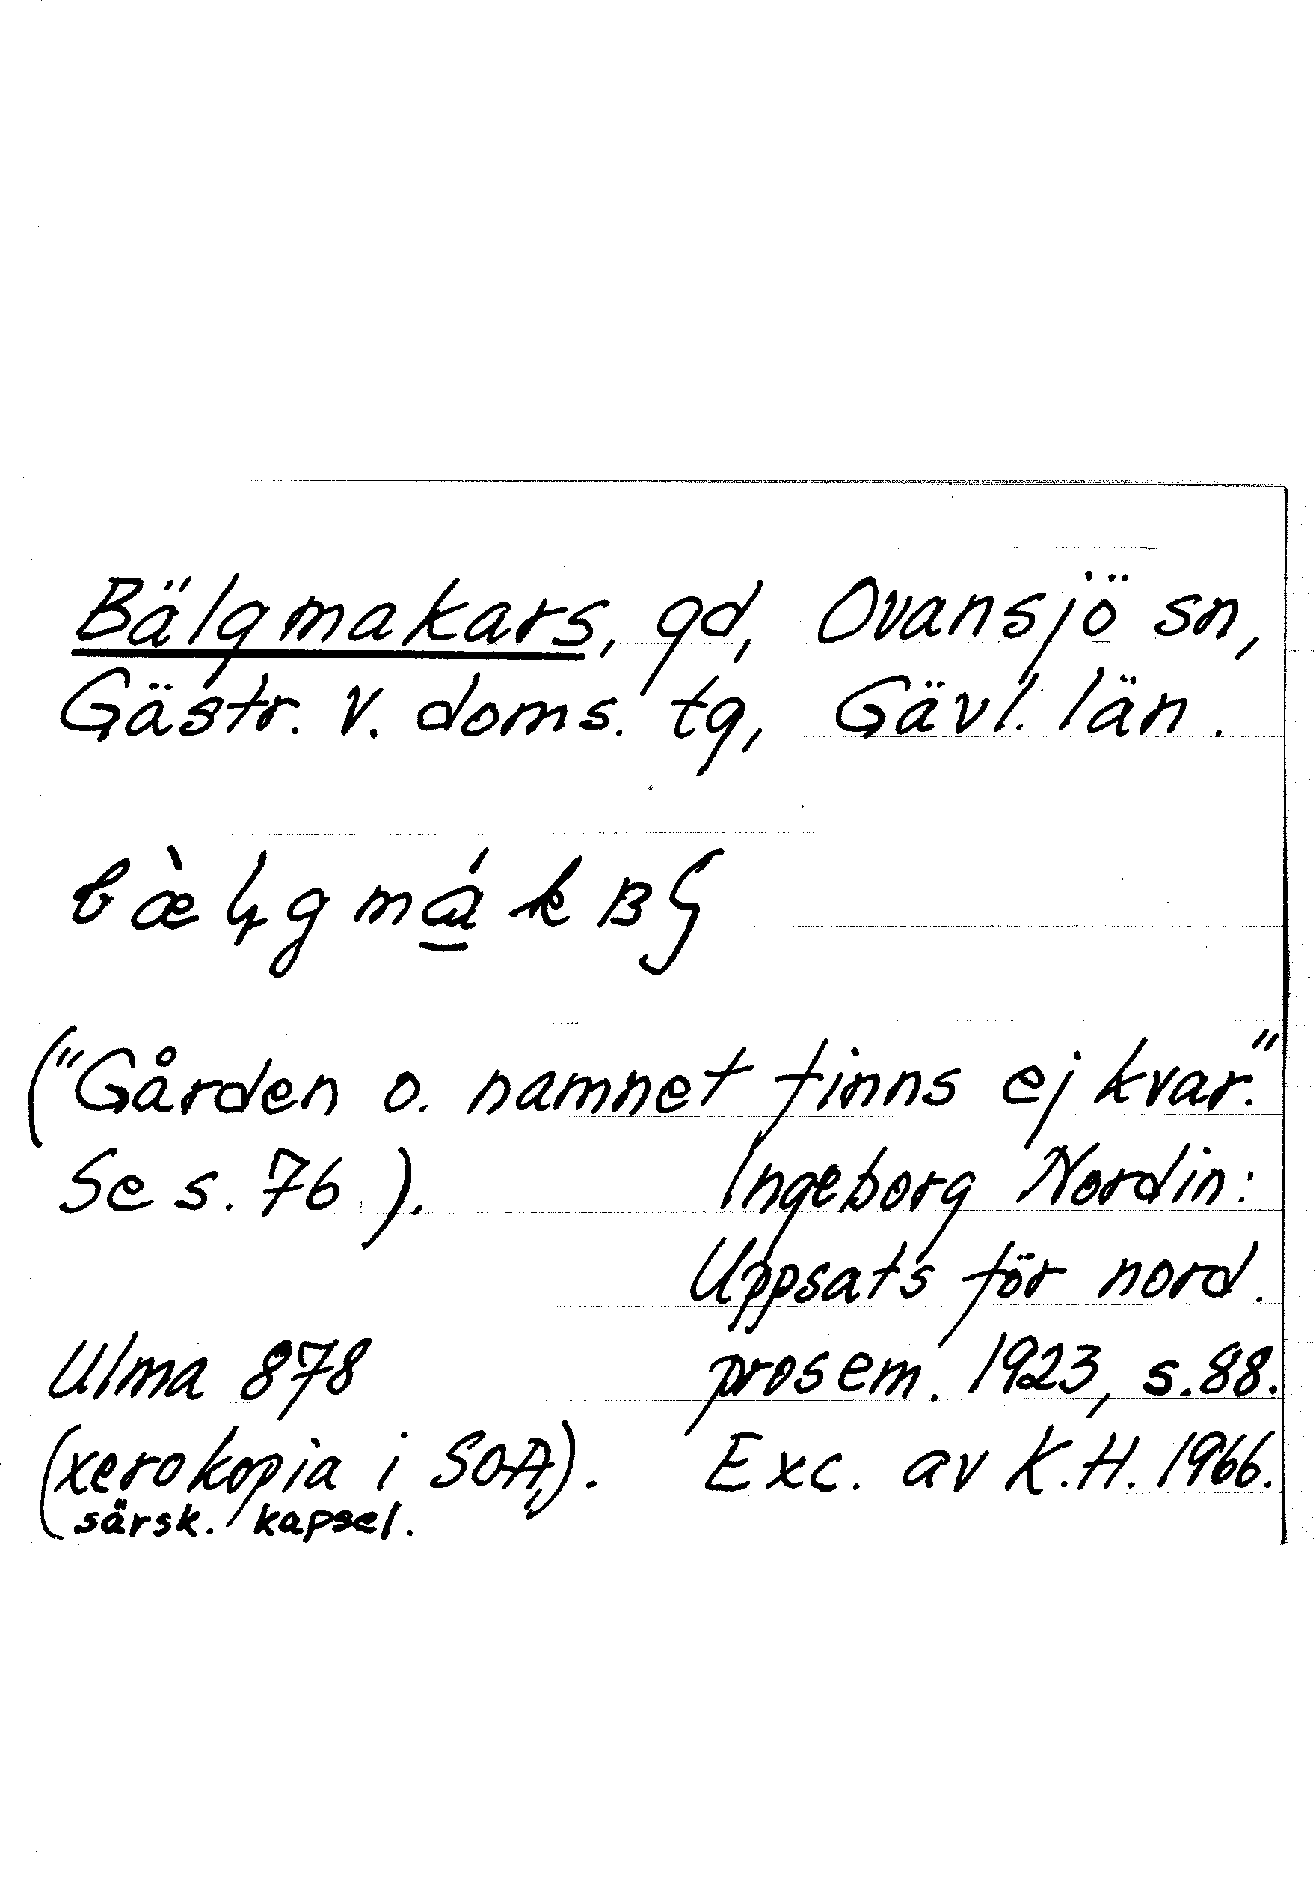 Bälgmakars, gd, Ovansjö sn,
Gästr. V. doms. tg, Gävl. län.
("Gården o. namnet finns ej kvar."
Se s. 76). Ingeborg Nordin:
Uppsats för nord.
Ulma 878 prosem. 1923, s. 88.
(xerokopia i SOA, Exc. av K.H. 1966.
särsk. kapsel.